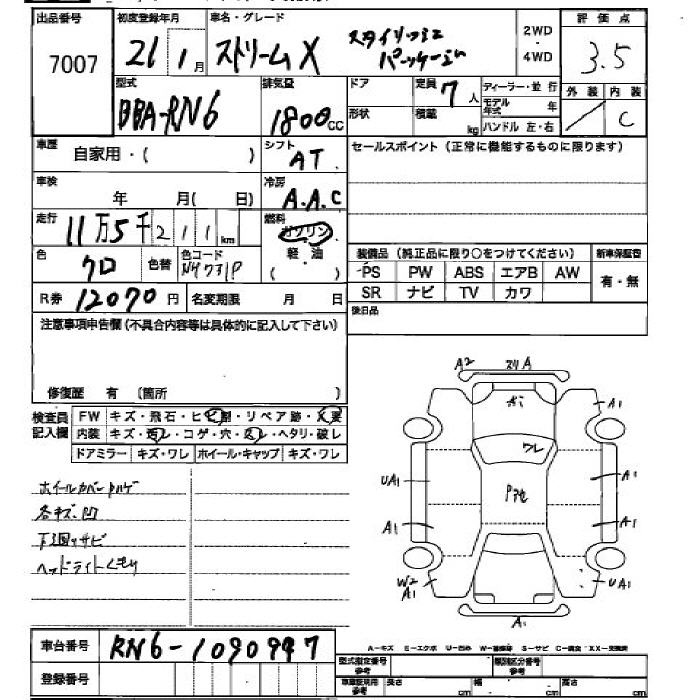 出品番号 初度登録年月 車名・グレード 2WD 評価点
7007 21 1月 ストリームX スタイリッシュ パッケージ 4WD 3.5
型式 排気量 ドア 定員 7人 ディーラー・並行 外装 内装
BBA-RN6 1800cc 形状 積載 kg モデル年式 年 C
ハンドル 左・右
車歴 自家用・( ) シフト AT セールスポイント(正常に機能するものに限ります)
車検 年 月( 日) 冷房 A.A.C
走行 11万5千211km 燃料 ガソリン
色 クロ 色替 色コード NH731P 軽・油 ( ) 装備品(純正品に限り○をつけてください) 新車保証書
PS PW ABS エアB AW 有・無
R券 12070円 名変期限 月 日 SR ナビ TV カワ
注意事項申告欄(不具合内容等は具体的に記入して下さい) 後日品
修復歴 有 (箇所 )
A2 A
A1
ワレ
UA1 A1
A1 A1
W2 A1 UA1
A1
検査員 FW キズ・飛石・ヒビ割・リペア跡・X要
記入欄 内装 キズ・汚レ・コゲ・穴・スレ・ヘタリ・破レ
ドアミラー キズ・ワレ ホイール・キャップ キズ・ワレ
ホイールカバーハゲ
各キズ.凹
下回りサビ
ヘッドライトくもり
A-キズ E-エクボ U-凹み S-サビ XX-交換済
車台番号 RN6-1090997 型式指定番号 類別区分番号
登録番号 長さ cm 幅 cm 高さ cm